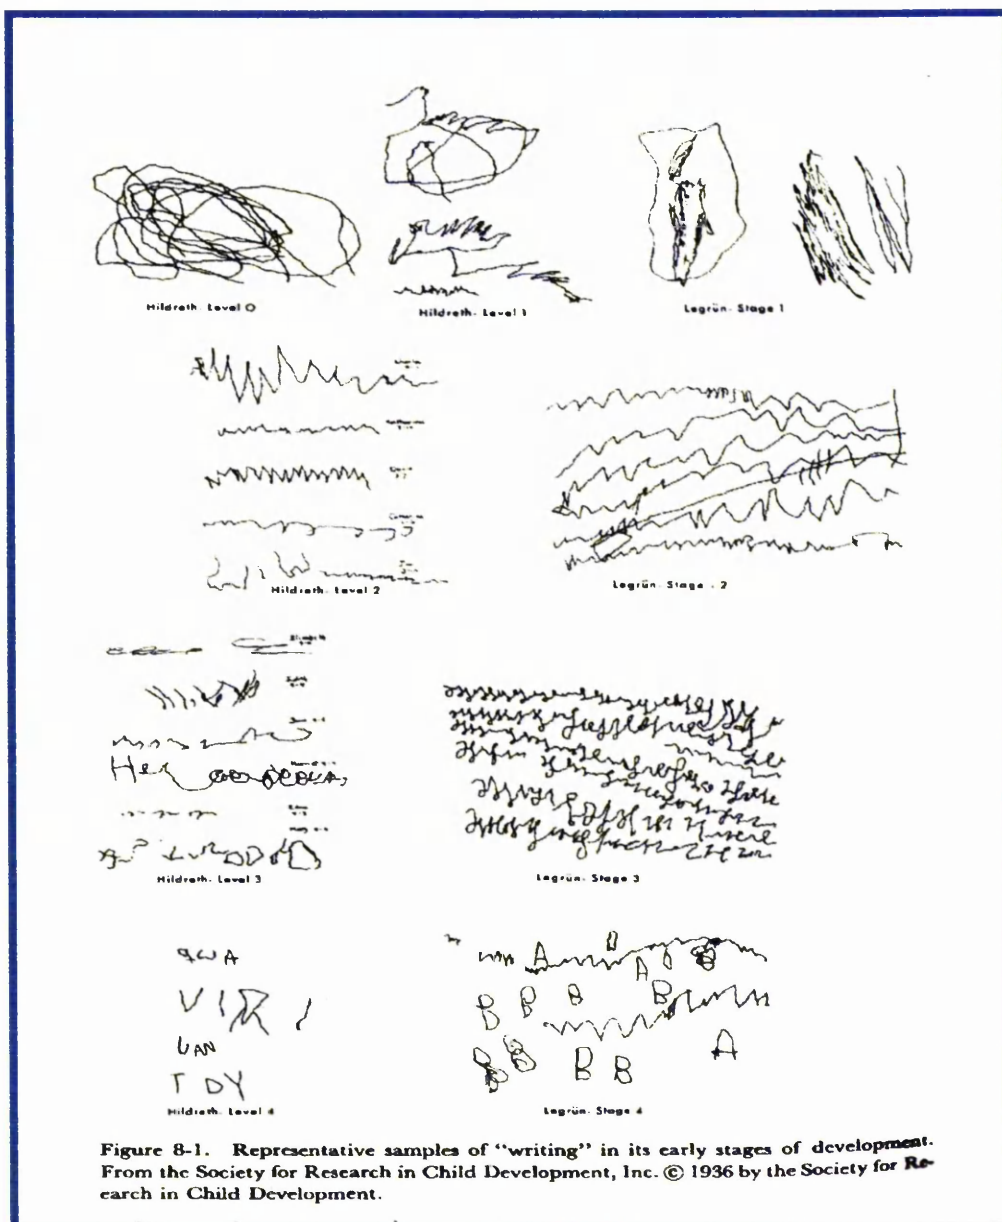 Hildreth- Level 0
Hildreth- Level 1
Legrün- Stage 1
Hildreth- Level 2
Legrün- Stage - 2
Hildreth- Level 3
Legrün- Stage 3
A
V I
UAN
T DY
A
A
B B
B
B B
A
Hildreth- Level 4
Legrün- Stage 4
Figure 8-1. Representative samples of "writing" in its early stages of development.
From the Society for Research in Child Development, Inc. © 1936 by the Society for Re-
earch in Child Development.